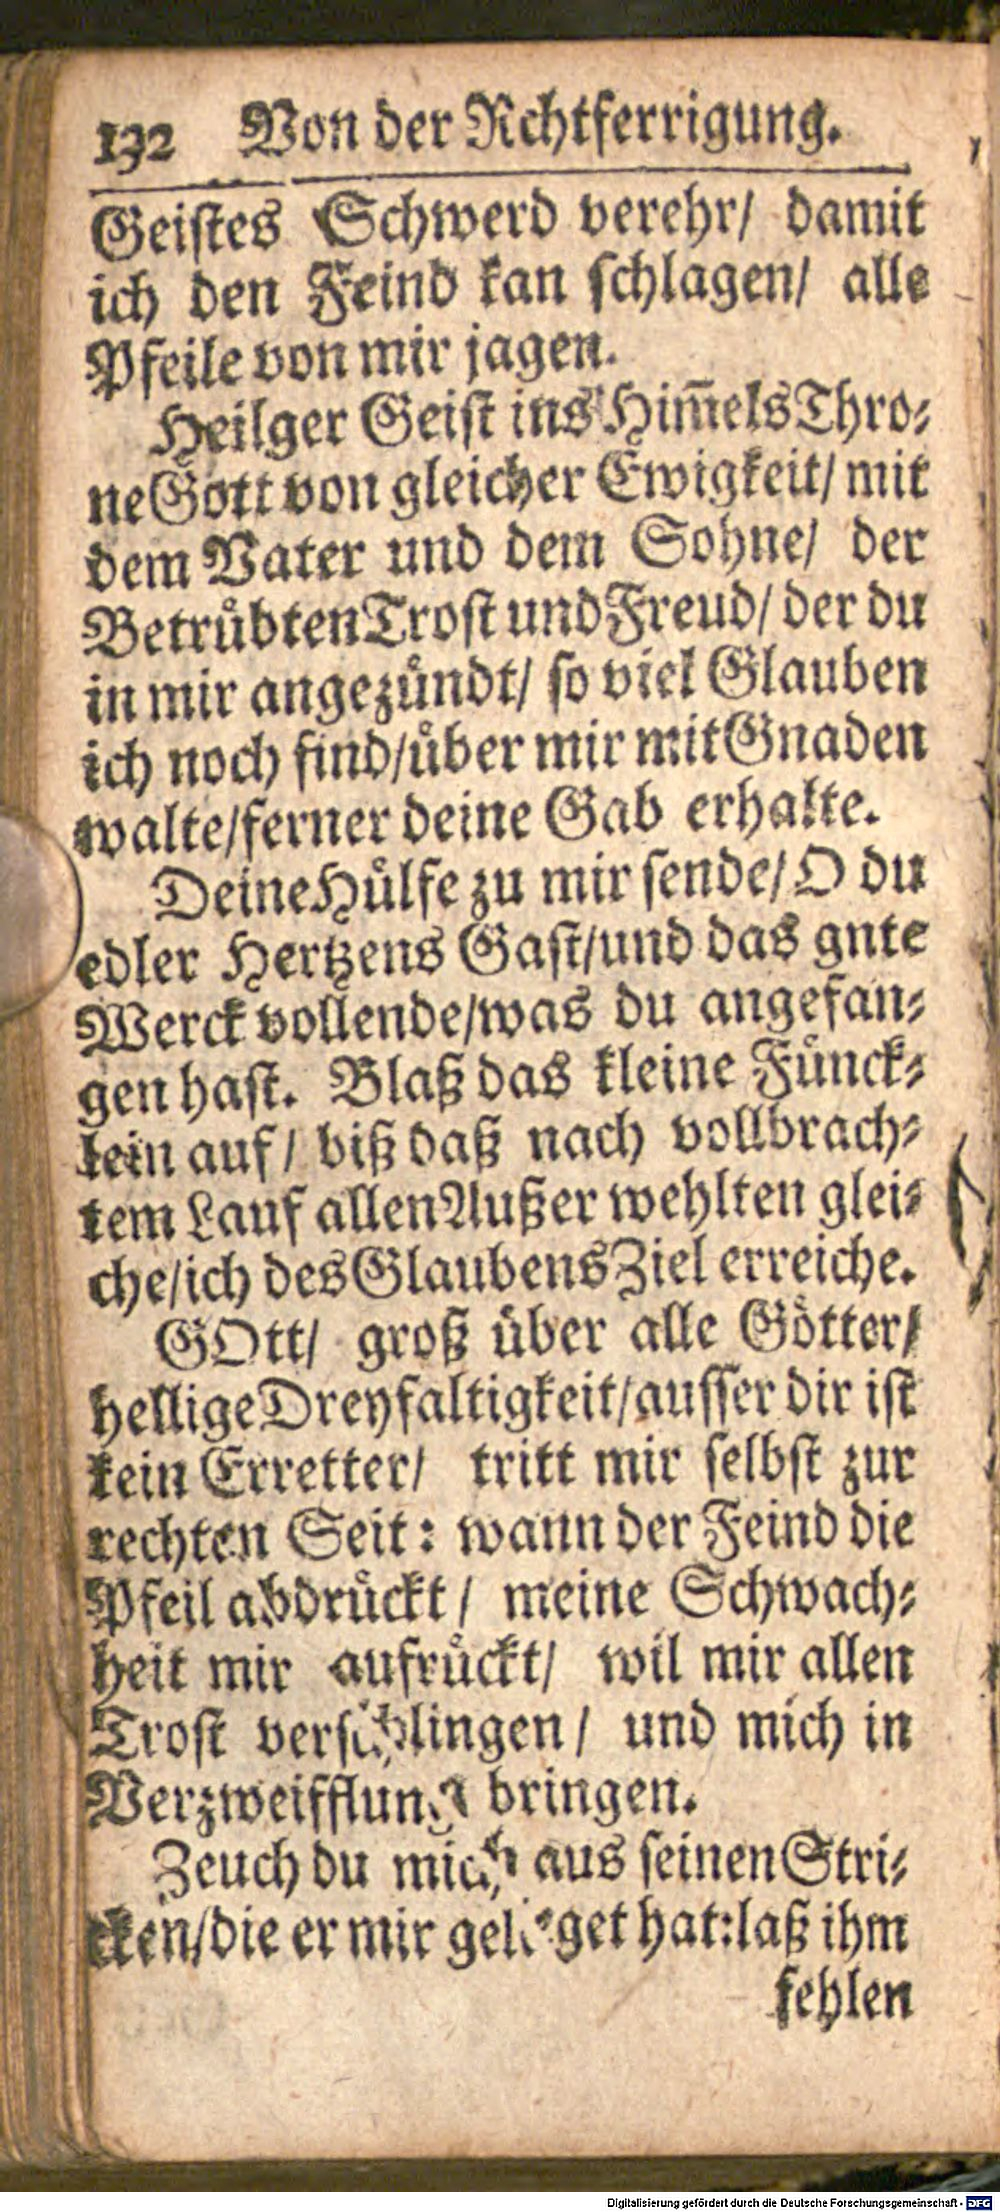 132 Von der Rchtferrigung.
Geistes Schwerd verehr/ damit
ich den Feind kan schlagen/ alle
Pfeile von mir jagen.
Heilger Geist ins Him̃els Thro-
ne Gott von gleicher Ewigkeit/ mit
dem Vater und dem Sohne/ der
Betruͤbten Trost und Freud/ der du
in mir angezuͤndt/ so viel Glauben
ich noch find/ uͤber mir mit Gnaden
walte/ ferner deine Gab erhalte.
Deine Huͤlfe zu mir sende/ O du
edler Hertzens Gast/ und das gnte
Werck vollende/ was du angefan-
gen hast. Blaß das kleine Fuͤnck-
lein auf/ biß daß nach vollbrach-
tem Lauf allen Außer wehlten glei-
che/ ich des Glaubens Ziel erreiche.
GOtt/ groß uͤber alle Goͤtter/
hellige Dreyfaltigkeit/ ausser dir ist
kein Erretter/ tritt mir selbst zur
rechten Seit: wann der Feind die
Pfeil abdruͤckt/ meine Schwach-
heit mir aufruͤckt/ wil mir allen
Trost verschlingen/ und mich in
Verzweifflung bringen.
Zeuch du mich aus seinen Stri-
cken/ die er mir geleget hat: laß ihm
fehlen
Digitalisierung gefördert durch die Deutsche Forschungsgemeinschaft - DFG